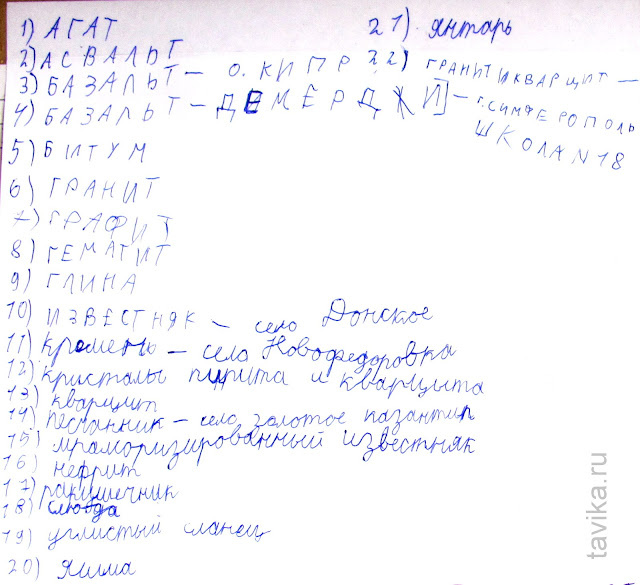 1) АГАТ
2) АСВАЛЬТ
3) БАЗАЛЬТ – О. КИПР
4) БАЗАЛЬТ – ДЕМЕРДЖИ
5) БИТУМ
6) ГРАНИТ
7) ГРАФИТ
8) ГЕМАТИТ
9) ГЛИНА
10) ИЗВЕСТНЯК – село Донское
11) кремень – село Новофедоровка
12) кристалы пирита и кварцыта
13) кварцит
14) песчанник – село золотое казантип
15) мраморизированный известняк
16) нефрит
17) ракушечник
18) слюда
19) углистый сланец
20) яшма
21) янтарь
22) ГРАНИТ И КВАРЦИТ –
г. СИМФЕРОПОЛЬ
ШКОЛА N 18
tavika.ru